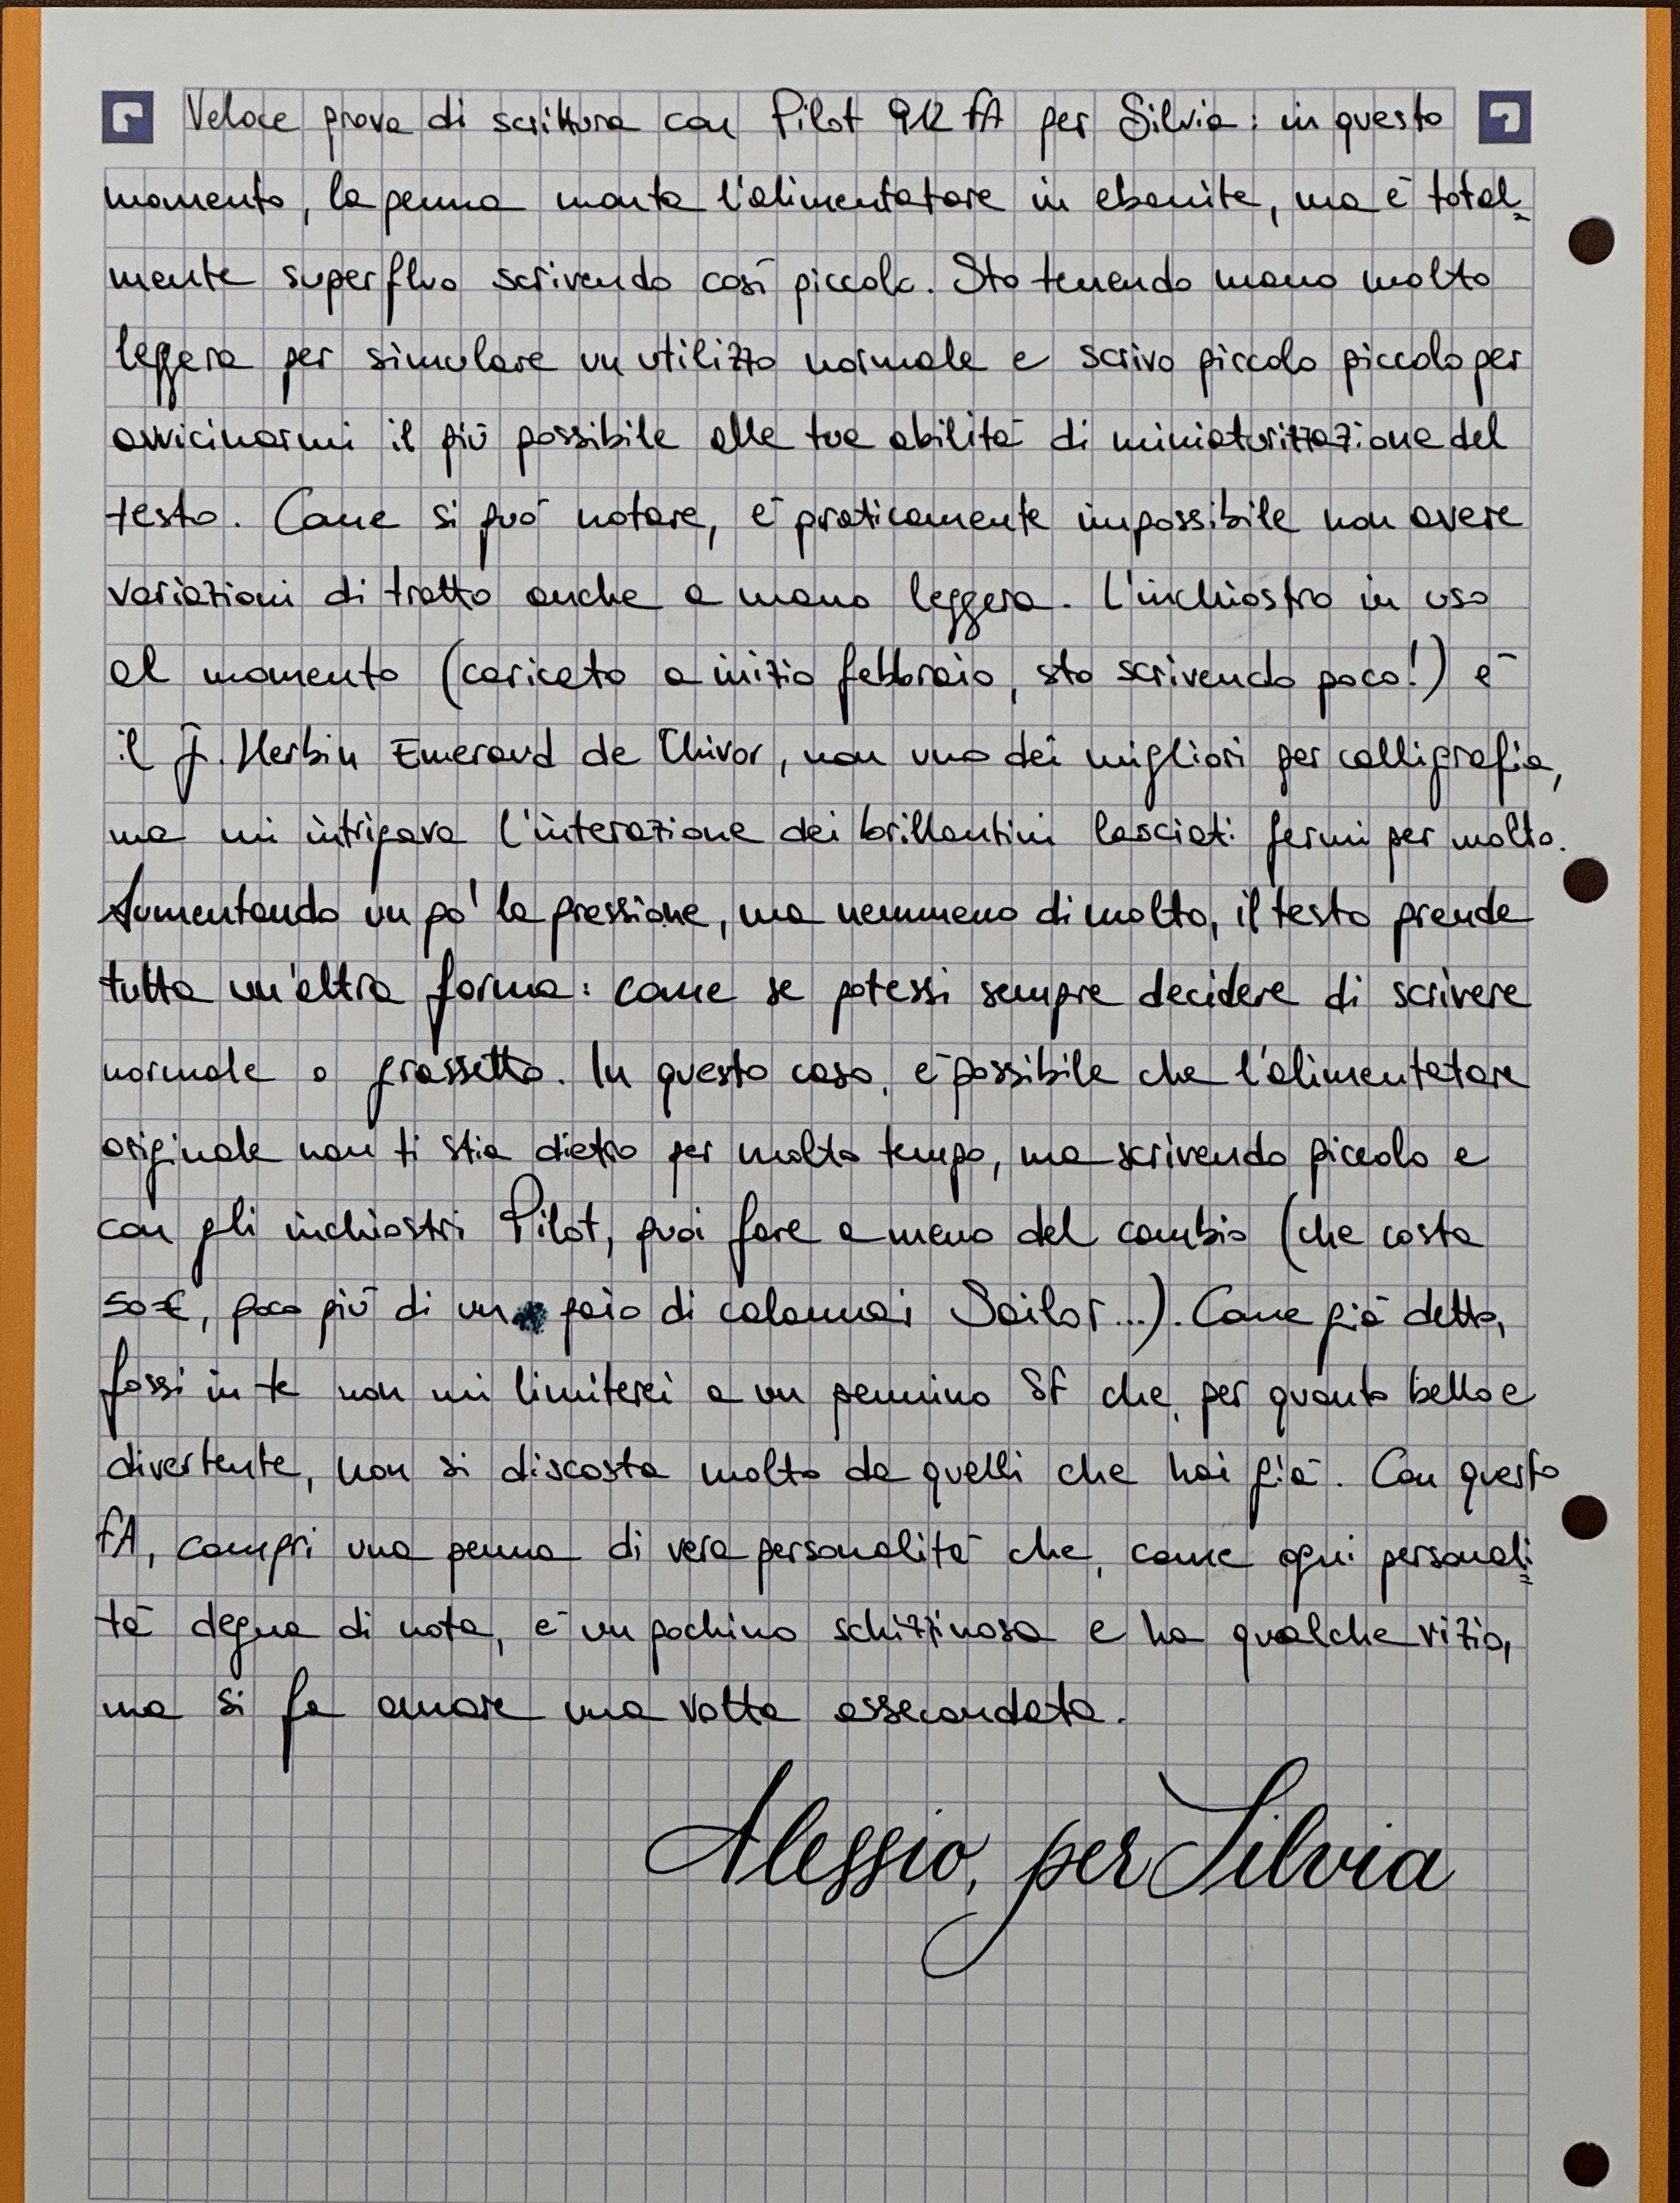 Veloce prova di scrittura con Pilot 912 FA per Silvia: in questo
momento, la penna monta l'alimentatore in ebanite, ma è total=
mente superfluo scrivendo così piccolo. Sto tenendo mano molto
leggera per simulare un utilizzo normale e scrivo piccolo piccolo per
avvicinarmi il più possibile alle tue abilità di miniaturizzazione del
testo. Come si può notare, è praticamente impossibile non avere
variazioni di tratto anche a mano leggera. L'inchiostro in uso
al momento (caricato a inizio febbraio, sto scrivendo poco!) è
il J. Herbin Emeraud de Chivor, non uno dei migliori per calligrafia,
ma mi intrigava l'interazione dei brillantini lasciati fermi per molto.
Aumentando un po' la pressione, ma nemmeno di molto, il testo prende
tutta un'altra forma: come se potessi sempre decidere di scrivere
normale o grassetto. In questo caso, è possibile che l'alimentatore
originale non ti stia dietro per molto tempo, ma scrivendo piccolo e
con gli inchiostri Pilot, puoi fare a meno del cambio (che costa
50€, poco più di un paio di calamai Sailor...). Come già detto,
fossi in te non mi limiterei a un pennino SF che, per quanto bello e
divertente, non si discosta molto da quelli che hai già. Con questo
FA, compri una penna di vera personalità che, come ogni personali=
tà degna di nota, è un pochino schizzinosa e ha qualche vizio,
ma si fa amare una volta assecondata.
Alessio, per Silvia